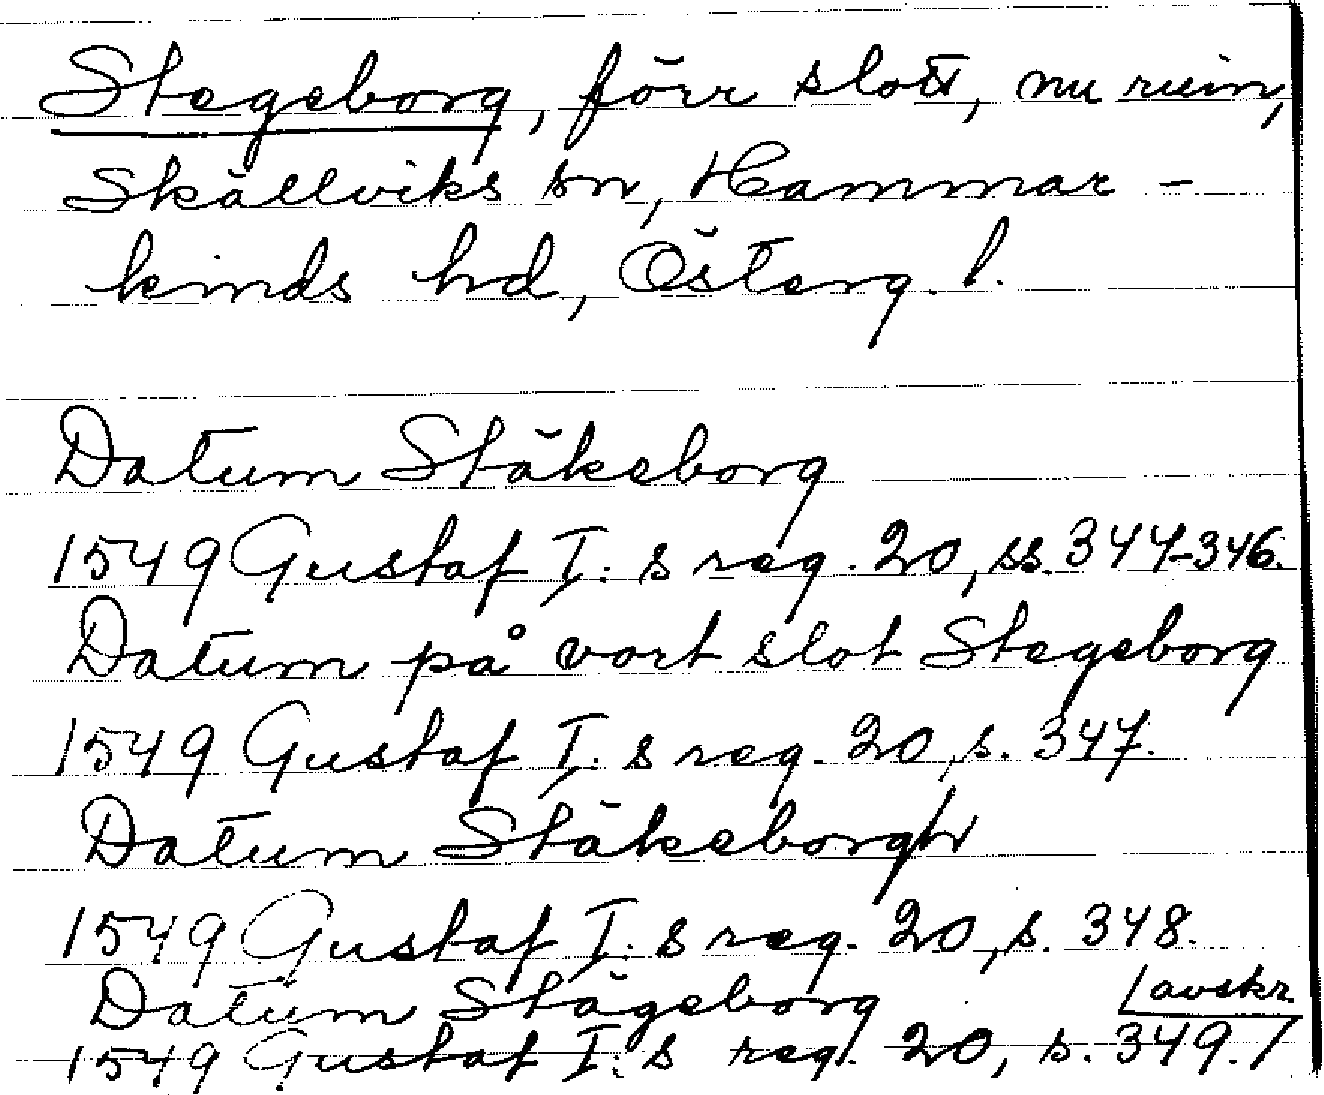 Stegeborg, förr slott, nu ruin,
Skällviks sn, Hammar-
kinds hd, Österg. l.
Datum Stäkeborg
1549 Gustaf I:s reg. 20, ss. 344-346.
Datum på vort slot Stegeborg
1549 Gustaf I:s reg. 20, s. 347.
Datum Stäkeborgh
1549 Gustaf I:s reg. 20, s. 348.
Datum Stägeborg /avskr.
1549 Gustaf I:s reg. 20, s. 349./